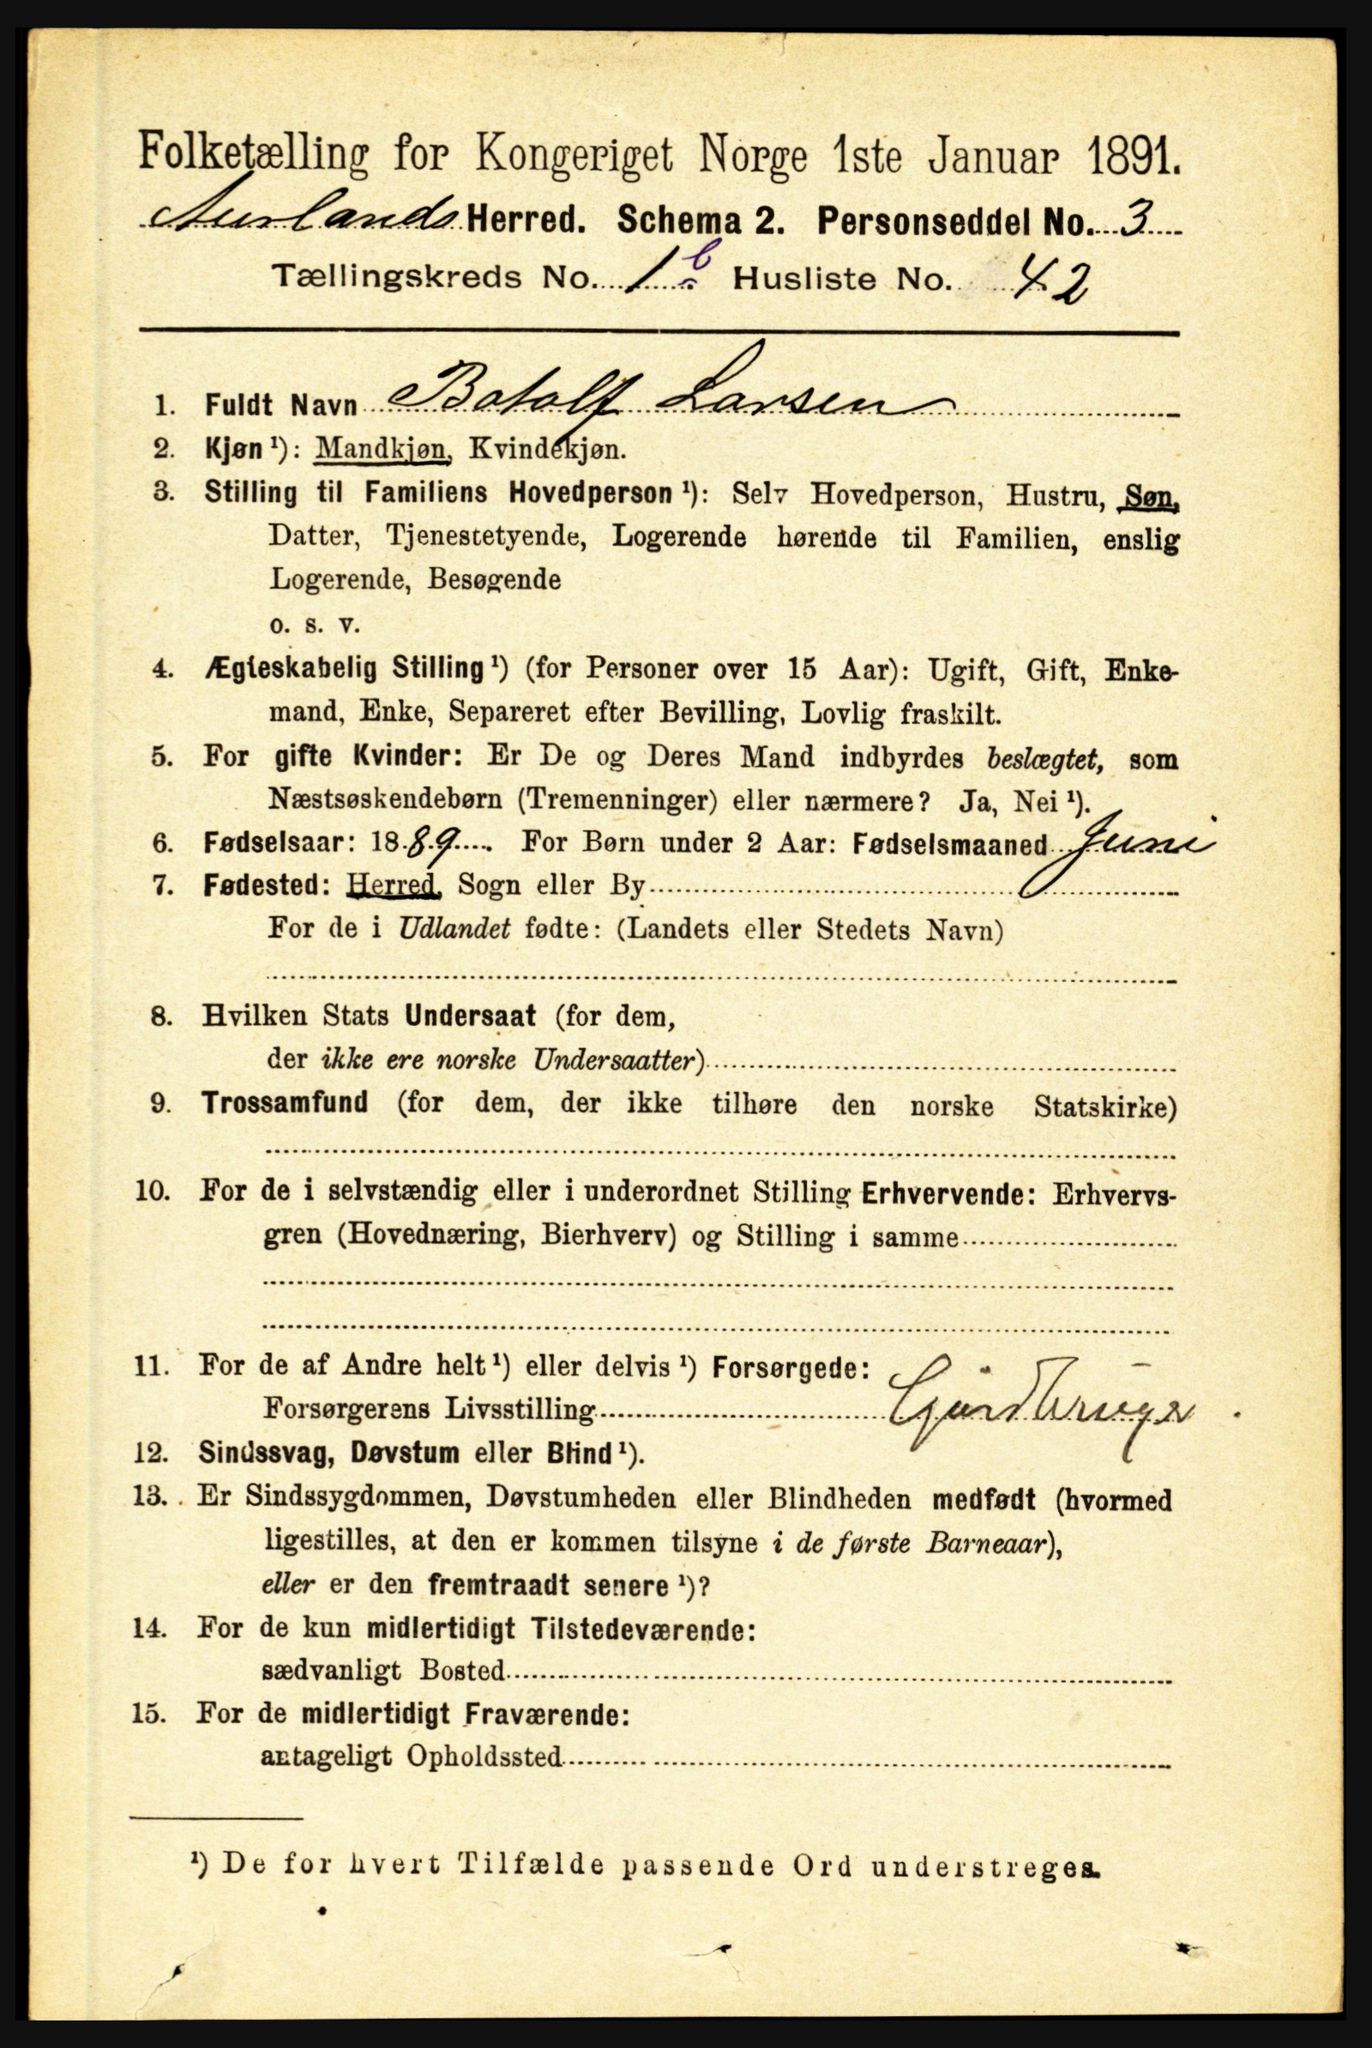 Folketælling for Kongeriget Norge 1ste Januar 1891.
Aurlands Herred. Schema 2. Personseddel No. 3
Tællingskreds No. 1 b Husliste No. 42
1. Fuldt Navn Botolf Larsen
2. Kjøn ¹): Mandkjøn, Kvindekjøn.
3. Stilling til Familiens Hovedperson ¹): Selv Hovedperson, Hustru, Søn,
Datter, Tjenestetyende, Logerende hørende til Familien, enslig
Logerende, Besøgende
o. s. v.
4. Ægteskabelig Stilling ¹) (for Personer over 15 Aar): Ugift, Gift, Enke-
mand, Enke, Separeret efter Bevilling, Lovlig fraskilt.
5. For gifte Kvinder: Er De og Deres Mand indbyrdes beslægtet, som
Næstsøskendebørn (Tremenninger) eller nærmere? Ja, Nei ¹).
6. Fødselsaar: 1889. For Børn under 2 Aar: Fødselsmaaned Juni
7. Fødested: Herred, Sogn eller By
For de i Udlandet fødte: (Landets eller Stedets Navn)
8. Hvilken Stats Undersaat (for dem,
der ikke ere norske Undersaatter)
9. Trossamfund (for dem, der ikke tilhøre den norske Statskirke)
10. For de i selvstændig eller i underordnet Stilling Erhvervende: Erhvervs-
gren (Hovednæring, Bierhverv) og Stilling i samme
11. For de af Andre helt ¹) eller delvis ¹) Forsørgede:
Forsørgerens Livsstilling Gjørdbruger
12. Sindssvag, Døvstum eller Blind ¹).
13. Er Sindssygdommen, Døvstumheden eller Blindheden medfødt (hvormed
ligestilles, at den er kommen tilsyne i de første Barneaar),
eller er den fremtraadt senere ¹)?
14. For de kun midlertidigt Tilstedeværende:
sædvanligt Bosted
15. For de midlertidigt Fraværende:
antageligt Opholdssted
¹) De for hvert Tilfælde passende Ord understreges.